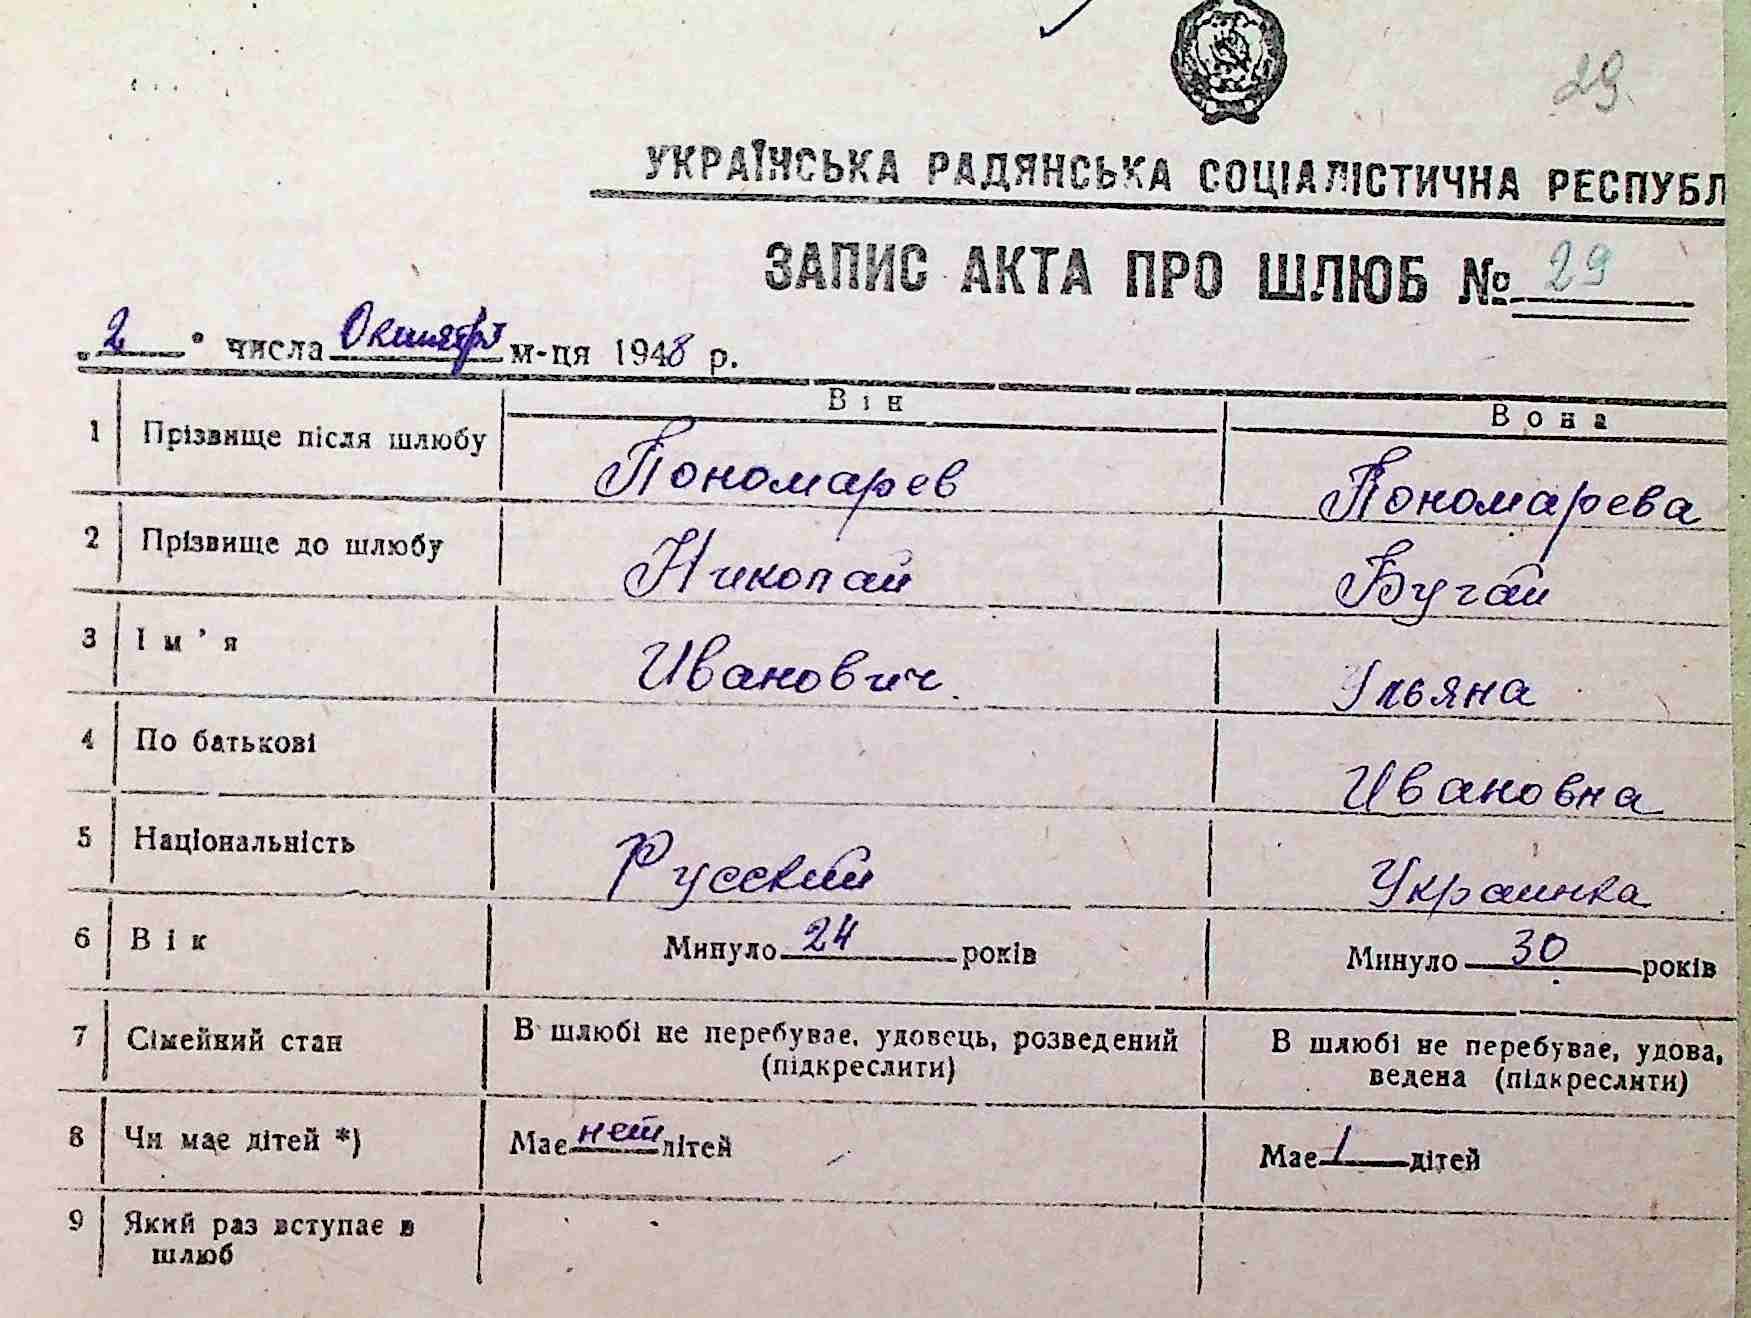 29.
УКРАЇНСЬКА РАДЯНСЬКА СОЦІАЛІСТИЧНА РЕСПУБЛ
ЗАПИС АКТА ПРО ШЛЮБ № 29
„2" числа Октября м-ця 1948 р.
Він Вона
1 Прізвище після шлюбу Пономарев Пономарева
2 Прізвище до шлюбу Николай Бугай
3 Ім'я Иванович. Ульяна
4 По батькові Ивановна
5 Національність Русский Украинка
6 Вік Минуло 24 років Минуло 30 років
7 Сімейний стан В шлюбі не перебуває, удовець, розведений В шлюбі не перебуває, удова,
(підкреслити) ведена (підкреслити)
8 Чи має дітей *) Має нет дітей Має 1 дітей
9 Який раз вступає в
шлюб